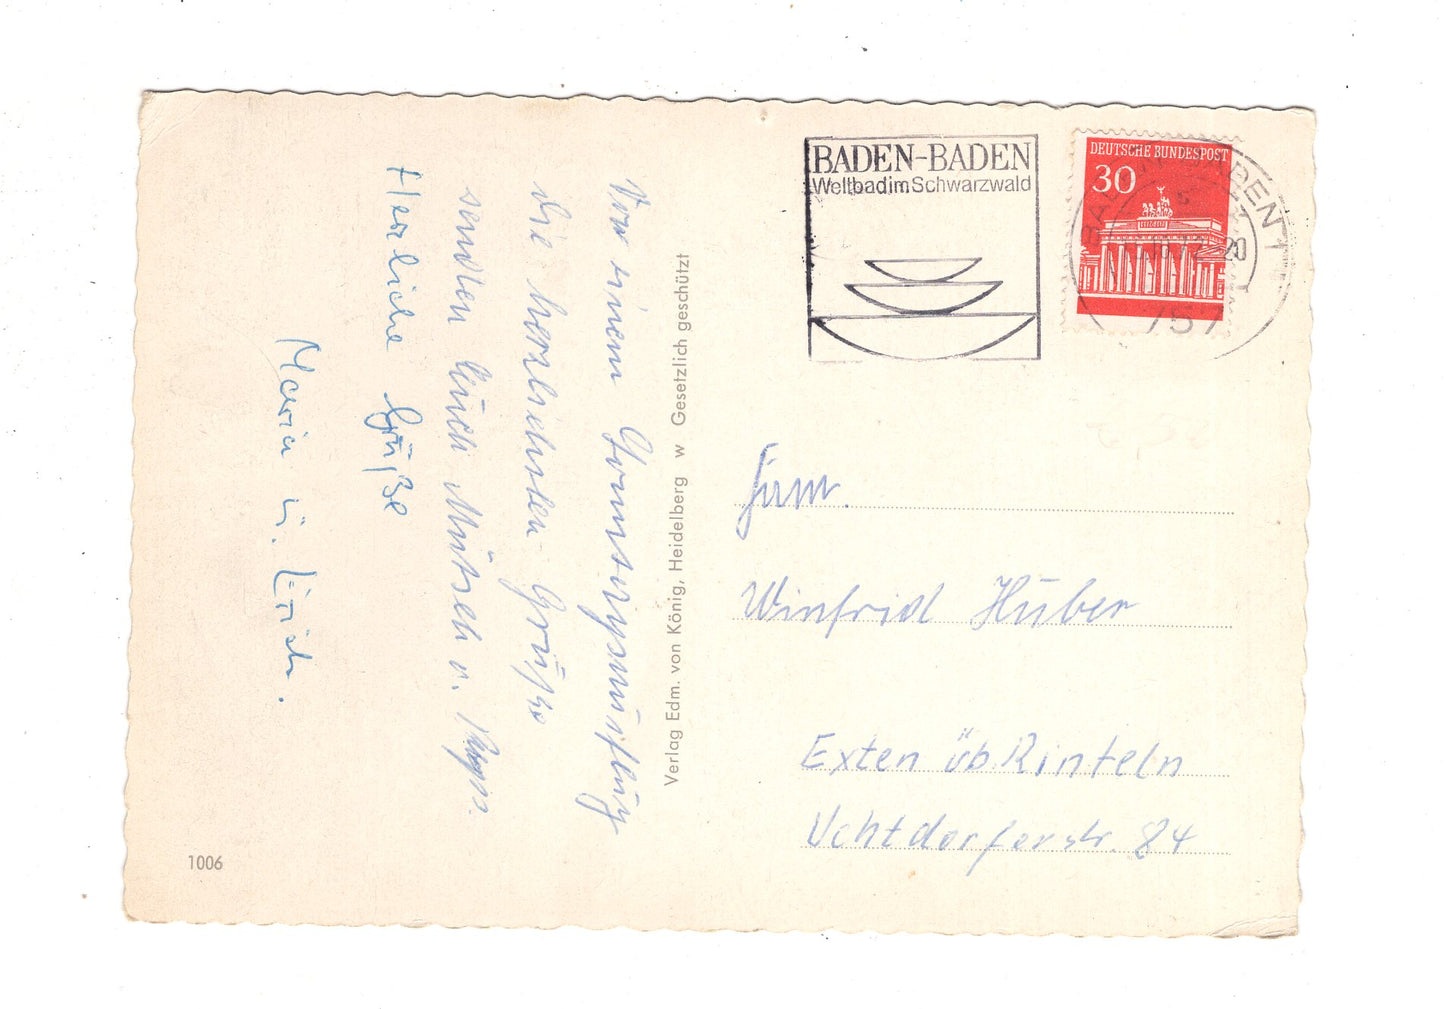 Von einem Sonntagsausflug
die herzlichsten Grüße
senden Euch Mutsch u.
Herzliche Grüße
Maria u. Erich.
1006
Verlag Edm. von König, Heidelberg w Gesetzlich geschützt
BADEN-BADEN
Weltbad im Schwarzwald
DEUTSCHE BUNDESPOST
30
BADEN-BADEN 1
72-20
757
Fam.
Winfrid Huber
Exten üb Rinteln
Uchtdorferstr. 84